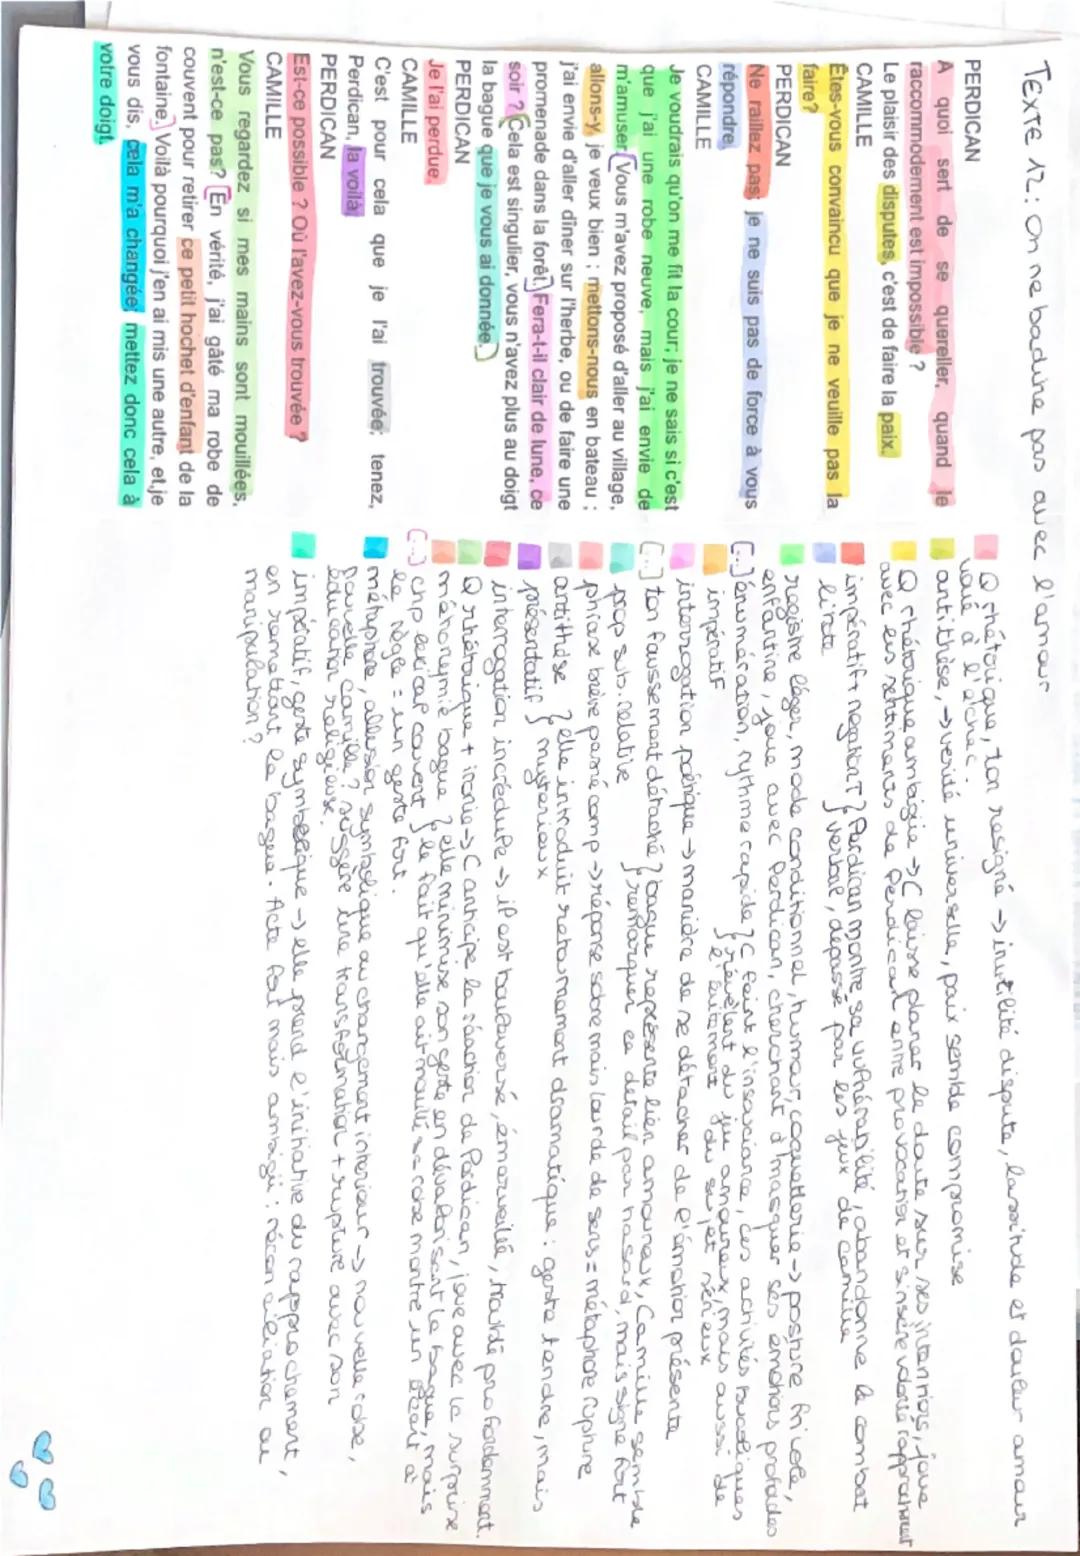 TEXTE 12: On ne badine pas avec l'amour
PERDICAN
A quoi sert de se quereller, quand le
raccommodement est impossible ?
Le plaisir des disputes, c'est de faire la paix.
CAMILLE
Êtes-vous convaincu que je ne veuille pas la
faire?
PERDICAN
Ne raillez pas; je ne suis pas de force à vous
répondre.
CAMILLE
Je voudrais qu'on me fit la cour; je ne sais si c'est
que j'ai une robe neuve, mais j'ai envie de
m'amuser. (Vous m'avez proposé d'aller au village,
allons-y, je veux bien ; mettons-nous en bateau ;
j'ai envie d'aller dîner sur l'herbe, ou de faire une
promenade dans la forêt.] Fera-t-il clair de lune, ce
soir ? (Cela est singulier, vous n'avez plus au doigt
la bague que je vous ai donnée.)
PERDICAN
Je l'ai perdue.
CAMILLE
C'est pour cela que je l'ai trouvée; tenez,
Perdican, la voilà
PERDICAN
Est-ce possible ? Où l'avez-vous trouvée ?
CAMILLE
Vous regardez si mes mains sont mouillées,
n'est-ce pas? [En vérité, j'ai gâté ma robe de
couvent pour retirer ce petit hochet d'enfant de la
fontaine.] Voilà pourquoi j'en ai mis une autre, et,je
vous dis, cela m'a changée; mettez donc cela à
votre doigt.
Q rhétorique, ton résigné → inutilité dispute, lassitude et douleur amour
voué à l'échec.
antithèse, → vérité universelle, paix semble compromise
Q rhétorique ambigüe → C laisse planer le doute sur ses intentions, joue
avec les sentiments de Perdican entre provocation et sincère volonté rapprochement
impératif + négation } Perdican montre sa vulnérabilité, abandonne le combat
litote } verbal, dépassé par les jeux de Camille
registre léger, mode conditionnel, humour, coquetterie → posture frivole,
enfantine, joue avec Perdican, cherchant à masquer ses émotions profondes
[...] énumération, rythme rapide } C feint l'insouciance, ces activités bucoliques
impératif } révèlent du jeu amoureux, mais aussi de
l'évitement du sujet sérieux
interrogation poétique → manière de se détacher de l'émotion présente
[...] ton faussement détaché } bague représente lien amoureux, Camille semble
prop sub. relative } remarquer ce détail par hasard, mais signe fort
phrase brève passé comp → réponse sobre mais lourde de sens = métaphore rupture
antithèse } elle introduit retournement dramatique : geste tendre, mais
présentatif } mystérieux
interrogation incrédule → il est bouleversé, émerveillé, troublé profondément.
Q rhétorique + ironie → C anticipe la réaction de Perdican, joue avec la surprise
métonymie bague } elle minimise son geste en dévalorisant la bague, mais
[...] chp lexical couvent } le fait qu'elle ait mouillé sa robe montre un écart à
la règle = un geste fort.
métaphore, allusion symbolique au changement intérieur → nouvelle robe,
nouvelle Camille ? suggère une transformation + rupture avec son
éducation religieuse.
impératif, geste symbolique → elle prend l'initiative du rapprochement,
en remettant la bague. Acte fort mais ambigü : réconciliation ou
manipulation ?